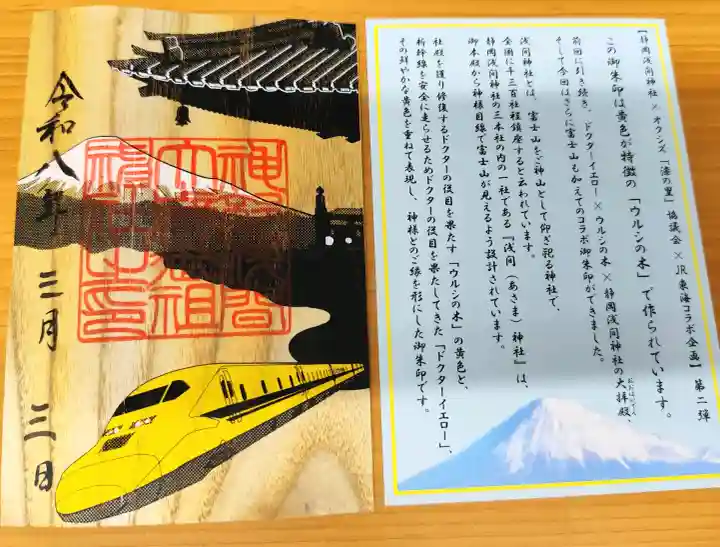 令和八年 三月 三日
【静岡浅間神社 × オクシズ「漆の里」協議会 × JR東海コラボ企画】第二弾
この御朱印は黄色が特徴の「ウルシの木」で作られています。
前回に引き続き、ドクターイエロー × ウルシの木 × 静岡浅間神社の大拝殿、
おおはいでん
そして今回はさらに富士山も加えてのコラボ御朱印ができました。
浅間神社とは、富士山をご神山として仰ぎ祀る神社で、
全国に千三百社程鎮座すると云われています。
静岡浅間神社の三本社の内の一社である『浅間(あさま)神社』は、
御本殿から神様目線で富士山が見えるよう設計されています。
社殿を護り修復するドクターの役目を果たす「ウルシの木」の黄色と、
新幹線を安全に走らせるためドクターの役目を果たしてきた「ドクターイエロー」、
その鮮やかな黄色を重ねて表現し、神様とのご縁を形にした御朱印です。